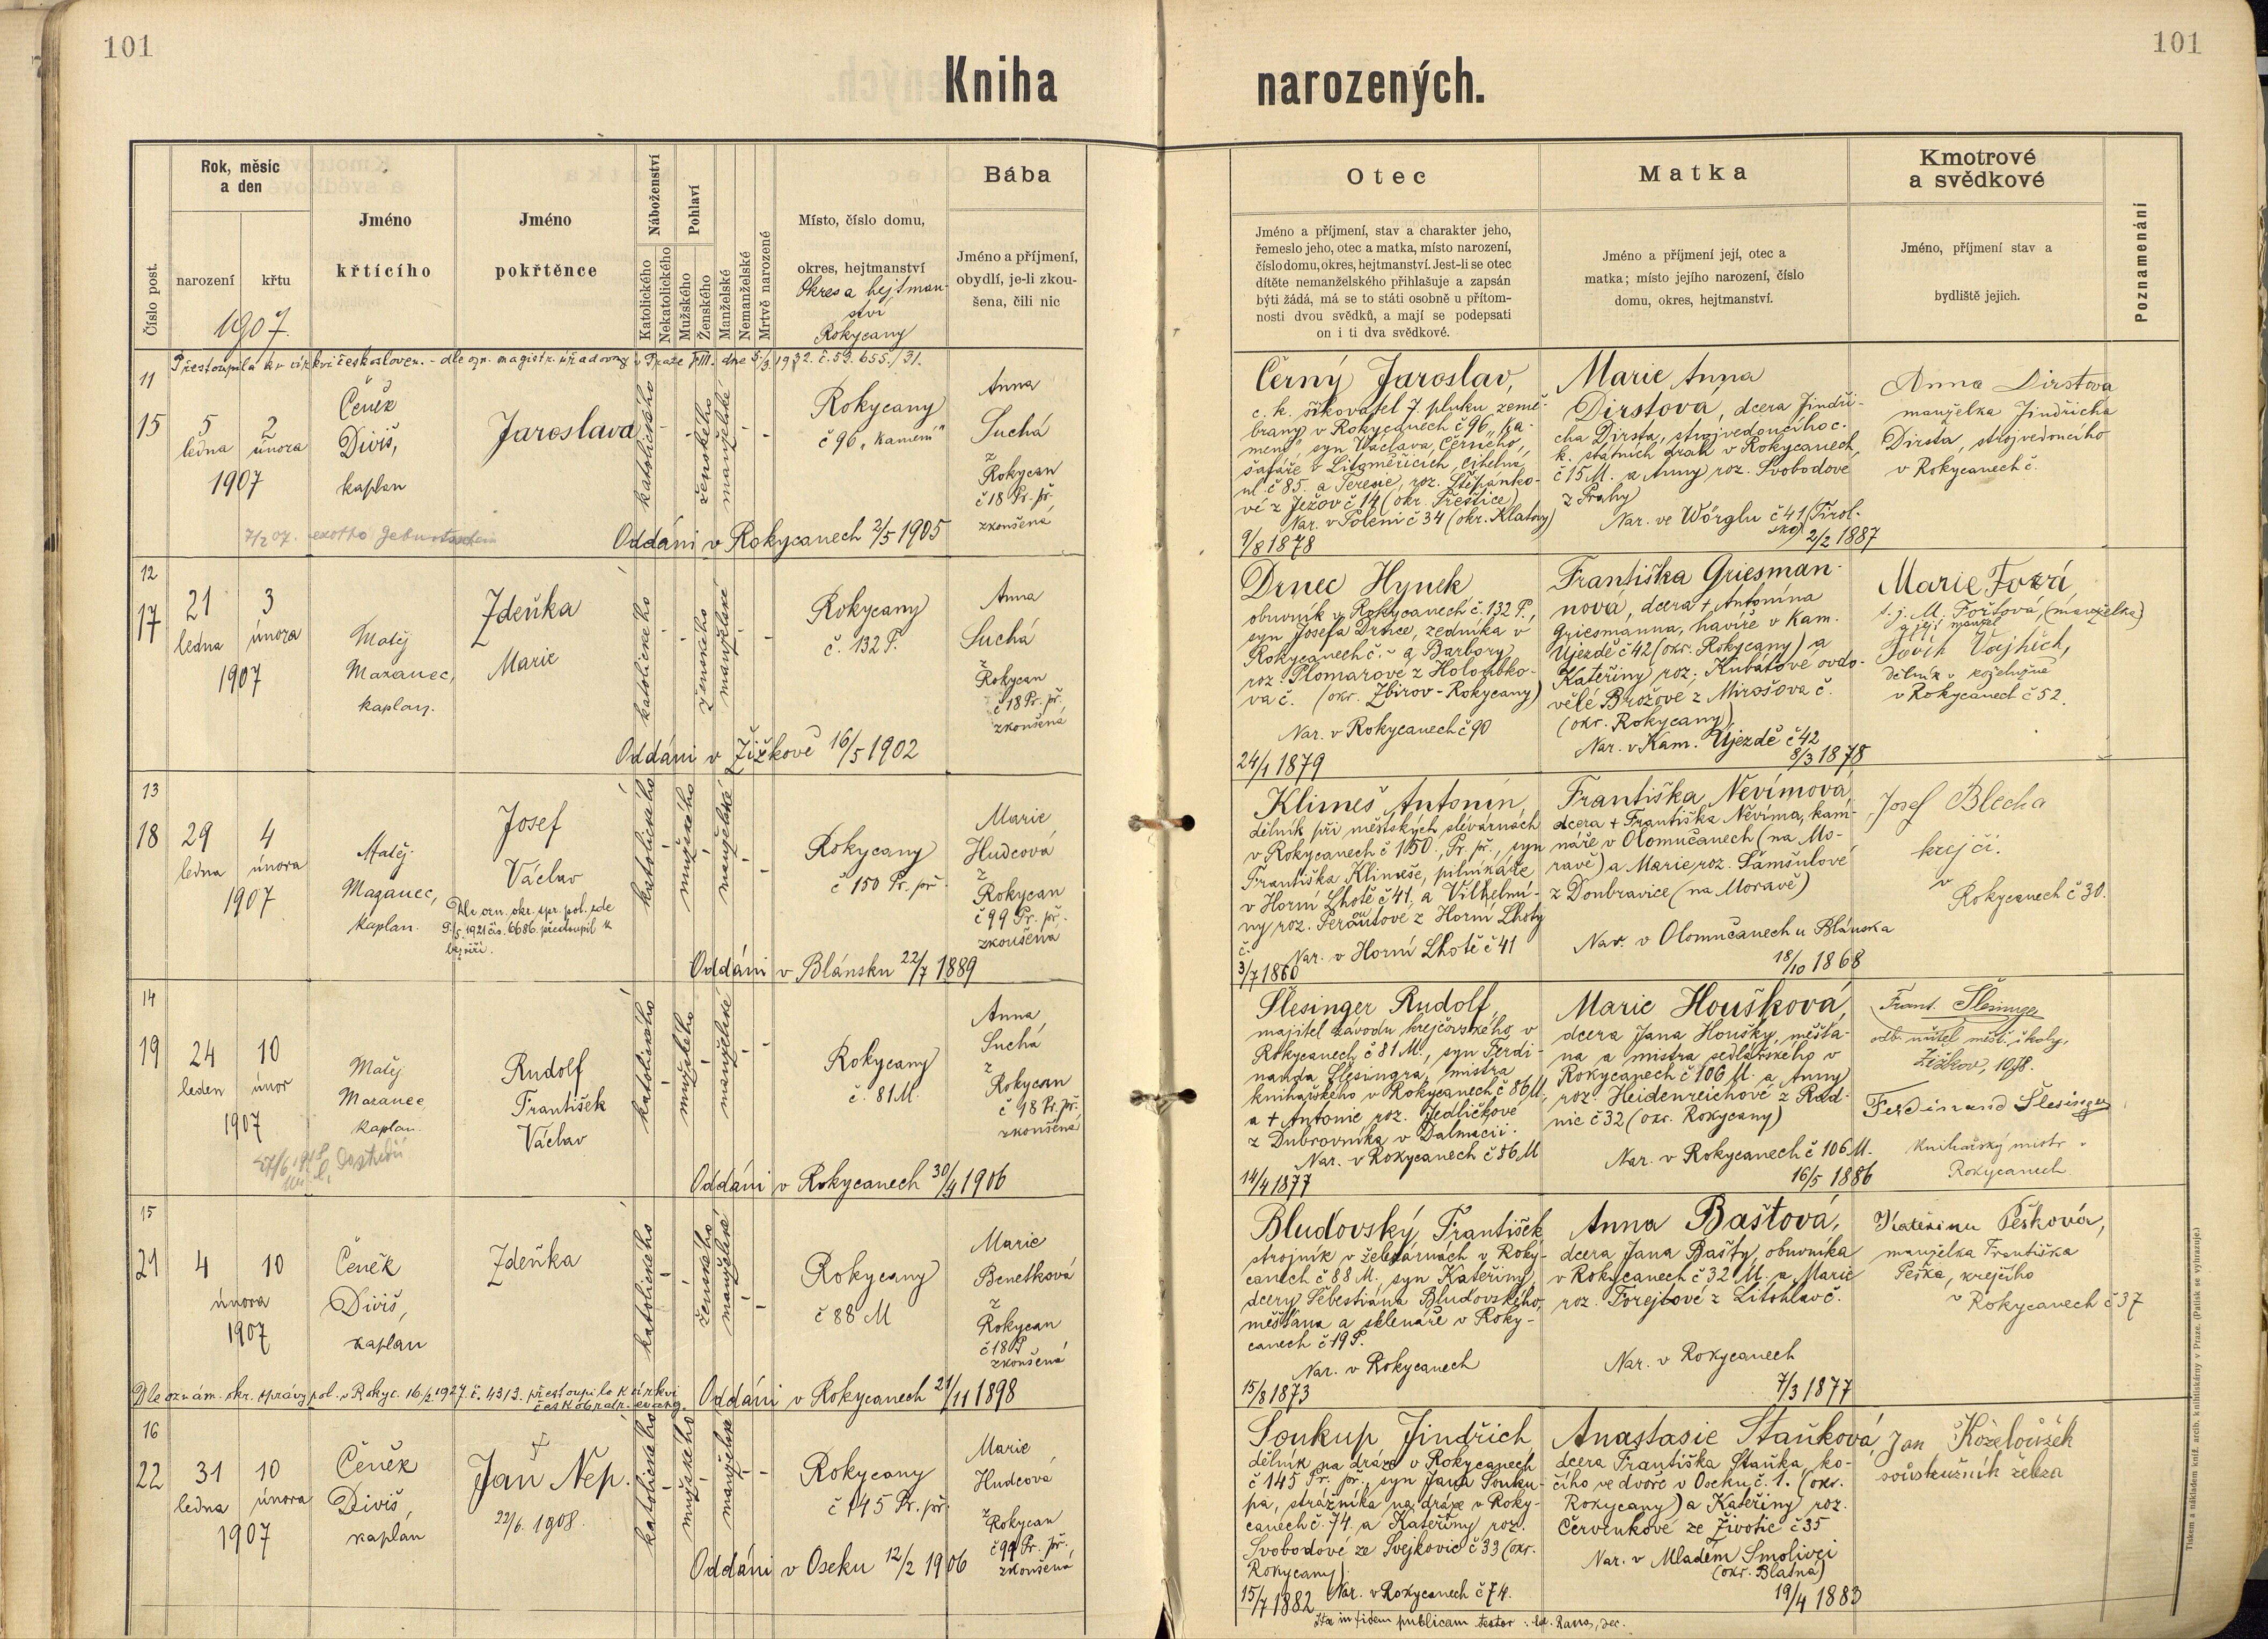 101
101
Kniha
narozených.
Číslo post.
Rok, měsíc
a den
narození
křtu
1907.
Jméno
křtícího
Jméno
pokřtěnce
Náboženství
Katolického
Nekatolického
Pohlaví
Mužského
Ženského
Manželské
Nemanželské
Mrtvě narozené
Místo, číslo domu,
okres, hejtmanství
Okres a hejtman-
ství
Rokycany
Bába
Jméno a příjmení,
obydlí, je-li zkou-
šena, čili nic
Otec
Jméno a příjmení, stav a charakter jeho,
řemeslo jeho, otec a matka, místo narození,
číslo domu, okres, hejtmanství. Jest-li se otec
dítěte nemanželského přihlašuje a zapsán
býti žádá, má se to státi osobně u přítom-
nosti dvou svědků, a mají se podepsati
on i ti dva svědkové.
Matka
Jméno a příjmení její, otec a
matka; místo jejího narození, číslo
domu, okres, hejtmanství.
Kmotrové
a svědkové
Jméno, příjmení stav a
bydliště jejich.
Poznamenání
Přestoupila k církvi českosloven. - dle ozn. magistr. úřadovny v Praze XIII. dne 5/3 1932. č. 53.655./31.
11
15
5
ledna
2
února
1907
Čeněk
Diviš,
kaplan
Jaroslava
katolického
ženského
manželské
Rokycany
č 96 „Kamení"
Anna
Suchá
z
Rokycan
č 18 Pr. př.
zkoušená
7/2 07. Geburtsschein
Oddáni v Rokycanech 2/5 1905
Černý Jaroslav,
c. k. šikovatel 7. pluku země-
brany v Rokycanech č 96 „Ka-
mení", syn Václava Černého,
šafáře v Litoměřicích, Cihelná
ul. č 85. a Terezie, roz. Štěpánko-
vé z Ježov č 14 (okr. Přeštice)
Nar. v Poleni č 34 (okr. Klatovy)
9/8 1878
Marie Anna
Dirstova, dcera Jindři-
cha Dirsta, strojvedoucího c.
k. státních drah v Rokycanech
č 15 M. a Anny roz. Svobodové
z Prahy
Nar. ve Wörglu č 41 (Tirol-
sko) 2/2 1887
Anna Dirstova
manželka Jindřicha
Dirsta, strojvedoucího
v Rokycanech č.
12
17
21
ledna
3
února
1907
Matěj
Mazanec,
kaplan.
Zdeňka
Marie
katolického
ženského
manželské
Rokycany
č. 132 P.
Anna
Suchá
z
Rokycan
č 18 Pr. př.
zkoušená
Oddáni v Žižkově 16/5 1902
Drnec Hynek
obuvník v Rokycanech č. 132 P.,
syn Josefa Drnce, zedníka v
Rokycanech č. - a Barbory
roz. Plomarové z Holoubko-
va č. (okr. Zbirov - Rokycany)
Nar. v Rokycanech č 90
24/1 1879
Františka Griesman-
nová, dcera + Antonína
Griesmanna, havíře v Kam.
Újezdě č 42 (okr. Rokycany) a
Kateřiny roz. Kubátové ovdo-
vělé Brožové z Mirošova č.
(okr. Rokycany)
Nar. v Kam. Újezdě č 42
8/3 1878
t. j. M. Fořtová, (manželka)
a její manžel
dělník v koželužně
v Rokycanech č 52.
13
18
29
ledna
4
února
1907
Matěj
Mazanec,
kaplan.
Josef
Václav
Dle ozn. okr. spr. pol. zde
9/5 1921 čís. 6686 přestoupil k
bezvěří.
katolického
mužského
manželské
Rokycany
č 150 Pr. př.
Marie
Hudcová
z
Rokycan
č 99 Pr. př.
zkoušená
Oddáni v Blánsku 22/7 1889
Klimeš Antonín,
dělník při městských slévárnách
v Rokycanech č 150, Pr. př., syn
Františka Klimeše, pilnikáře
v Horní Lhotě č 41, a Vilhelmí-
ny roz. Peroutové z Horní Lhoty
č.
Nar. v Horní Lhotě č 41
3/7 1860
Františka Nevímova
dcera + Františka Nevíma, kam-
náře v Olomučanech (na Mo-
ravě) a Marie, roz. Šamšulové
z Doubravice (na Moravě)
Nar. v Olomučanech u Blánska
18/10 1868
Josef Blecha
krejčí.
v
Rokycanech č 30.
14
19
24
leden
10
únor
1907
Matěj
Mazanec
kaplan.
Rudolf
František
Václav
katolického
mužského
manželské
Rokycany
č. 81 M.
Anna
Suchá
z
Rokycan
č 98 Pr. př.
zkoušená
Oddáni v Rokycanech 30/4 1906
Šlesinger Rudolf,
majitel závodu krejčovského v
Rokycanech č 81 M., syn Ferdi-
nanda Šlesingra, mistra
knihařského v Rokycanech č 86 M.
a + Antonie roz. Jedličkové
z Dubrovníka v Dalmacii.
Nar. v Rokycanech č 86 M
14/4 1877
Marie Houšková,
dcera Jana Houšky, měšťa-
na a mistra sedlářského v
Rokycanech č 106 M. a Anny
roz. Heidenreichové z Rad-
nic č 32 (okr. Rokycany)
Nar. v Rokycanech č 106 M.
16/5 1886
Frant. Šlesinger
odb. učitel měšť. školy,
Žižkov, 1078.
Ferdinand Šlesinger
knihařský mistr v
Rokycanech
15
21
4
10
února
1907
Čeněk
Diviš,
kaplan
Zdeňka
katolického
ženského
manželské
Rokycany
č 88 M
Marie
Benetková
z
Rokycan
č 18 P
zkoušená
Dle oznám. okr. správy pol. v Rokyc. 16/2 1927. č. 4313. přestoupila k církvi
českobratr. evang.
Oddáni v Rokycanech 21/11 1898
Bludovský František
strojník v železárnách v Roky-
canech č 88 M. syn Kateřiny,
dcery Šebestiána Bludovského,
měšťana a sklenáře v Roky-
canech č 19 P.
Nar. v Rokycanech
15/8 1873
Anna Baštová,
dcera Jana Bašty, obuvníka
v Rokycanech č 32 M. a Marie
roz. Forejtové z Litohlav č.
Nar. v Rokycanech
7/3 1877
Kateřina Pešková,
manželka Františka
Peška, krejčího
v Rokycanech č 37
16
22
31
ledna
10
února
1907
Čeněk
Diviš,
kaplán
Jan Nep.
22/6. 1908.
katolického
mužského
manželské
Rokycany
č 145 Pr. př.
Marie
Hudcová
z
Rokycan
č 99 Pr. př.,
zkoušená
Oddáni v Oseku 12/2 1906
Soukup Jindřich
dělník na dráze v Rokycanech
č 145 Pr. př., syn Jana Souku-
pa, strážníka na dráze v Roky-
canech č. 74. a Kateřiny roz.
Svobodové ze Svejkovic č 33 (okr.
Rokycany)
Nar. v Rokycanech č 74.
15/7 1882
Anastasie Staňková
dcera Františka Staňka, ko-
čího ve dvoře v Oseku č. 1. (okr.
Rokycany) a Kateřiny roz.
Červenkové ze Životic č 35
Nar. v Mladém Smolivci
(okr. Blatná)
19/4 1883
Jan Koželoužek
soustružník železa
Ita in fidem publicam testor:
Tiskem a nákladem kníž. arcib. knihtiskárny v Praze. (Patisk se vyhrazuje.)